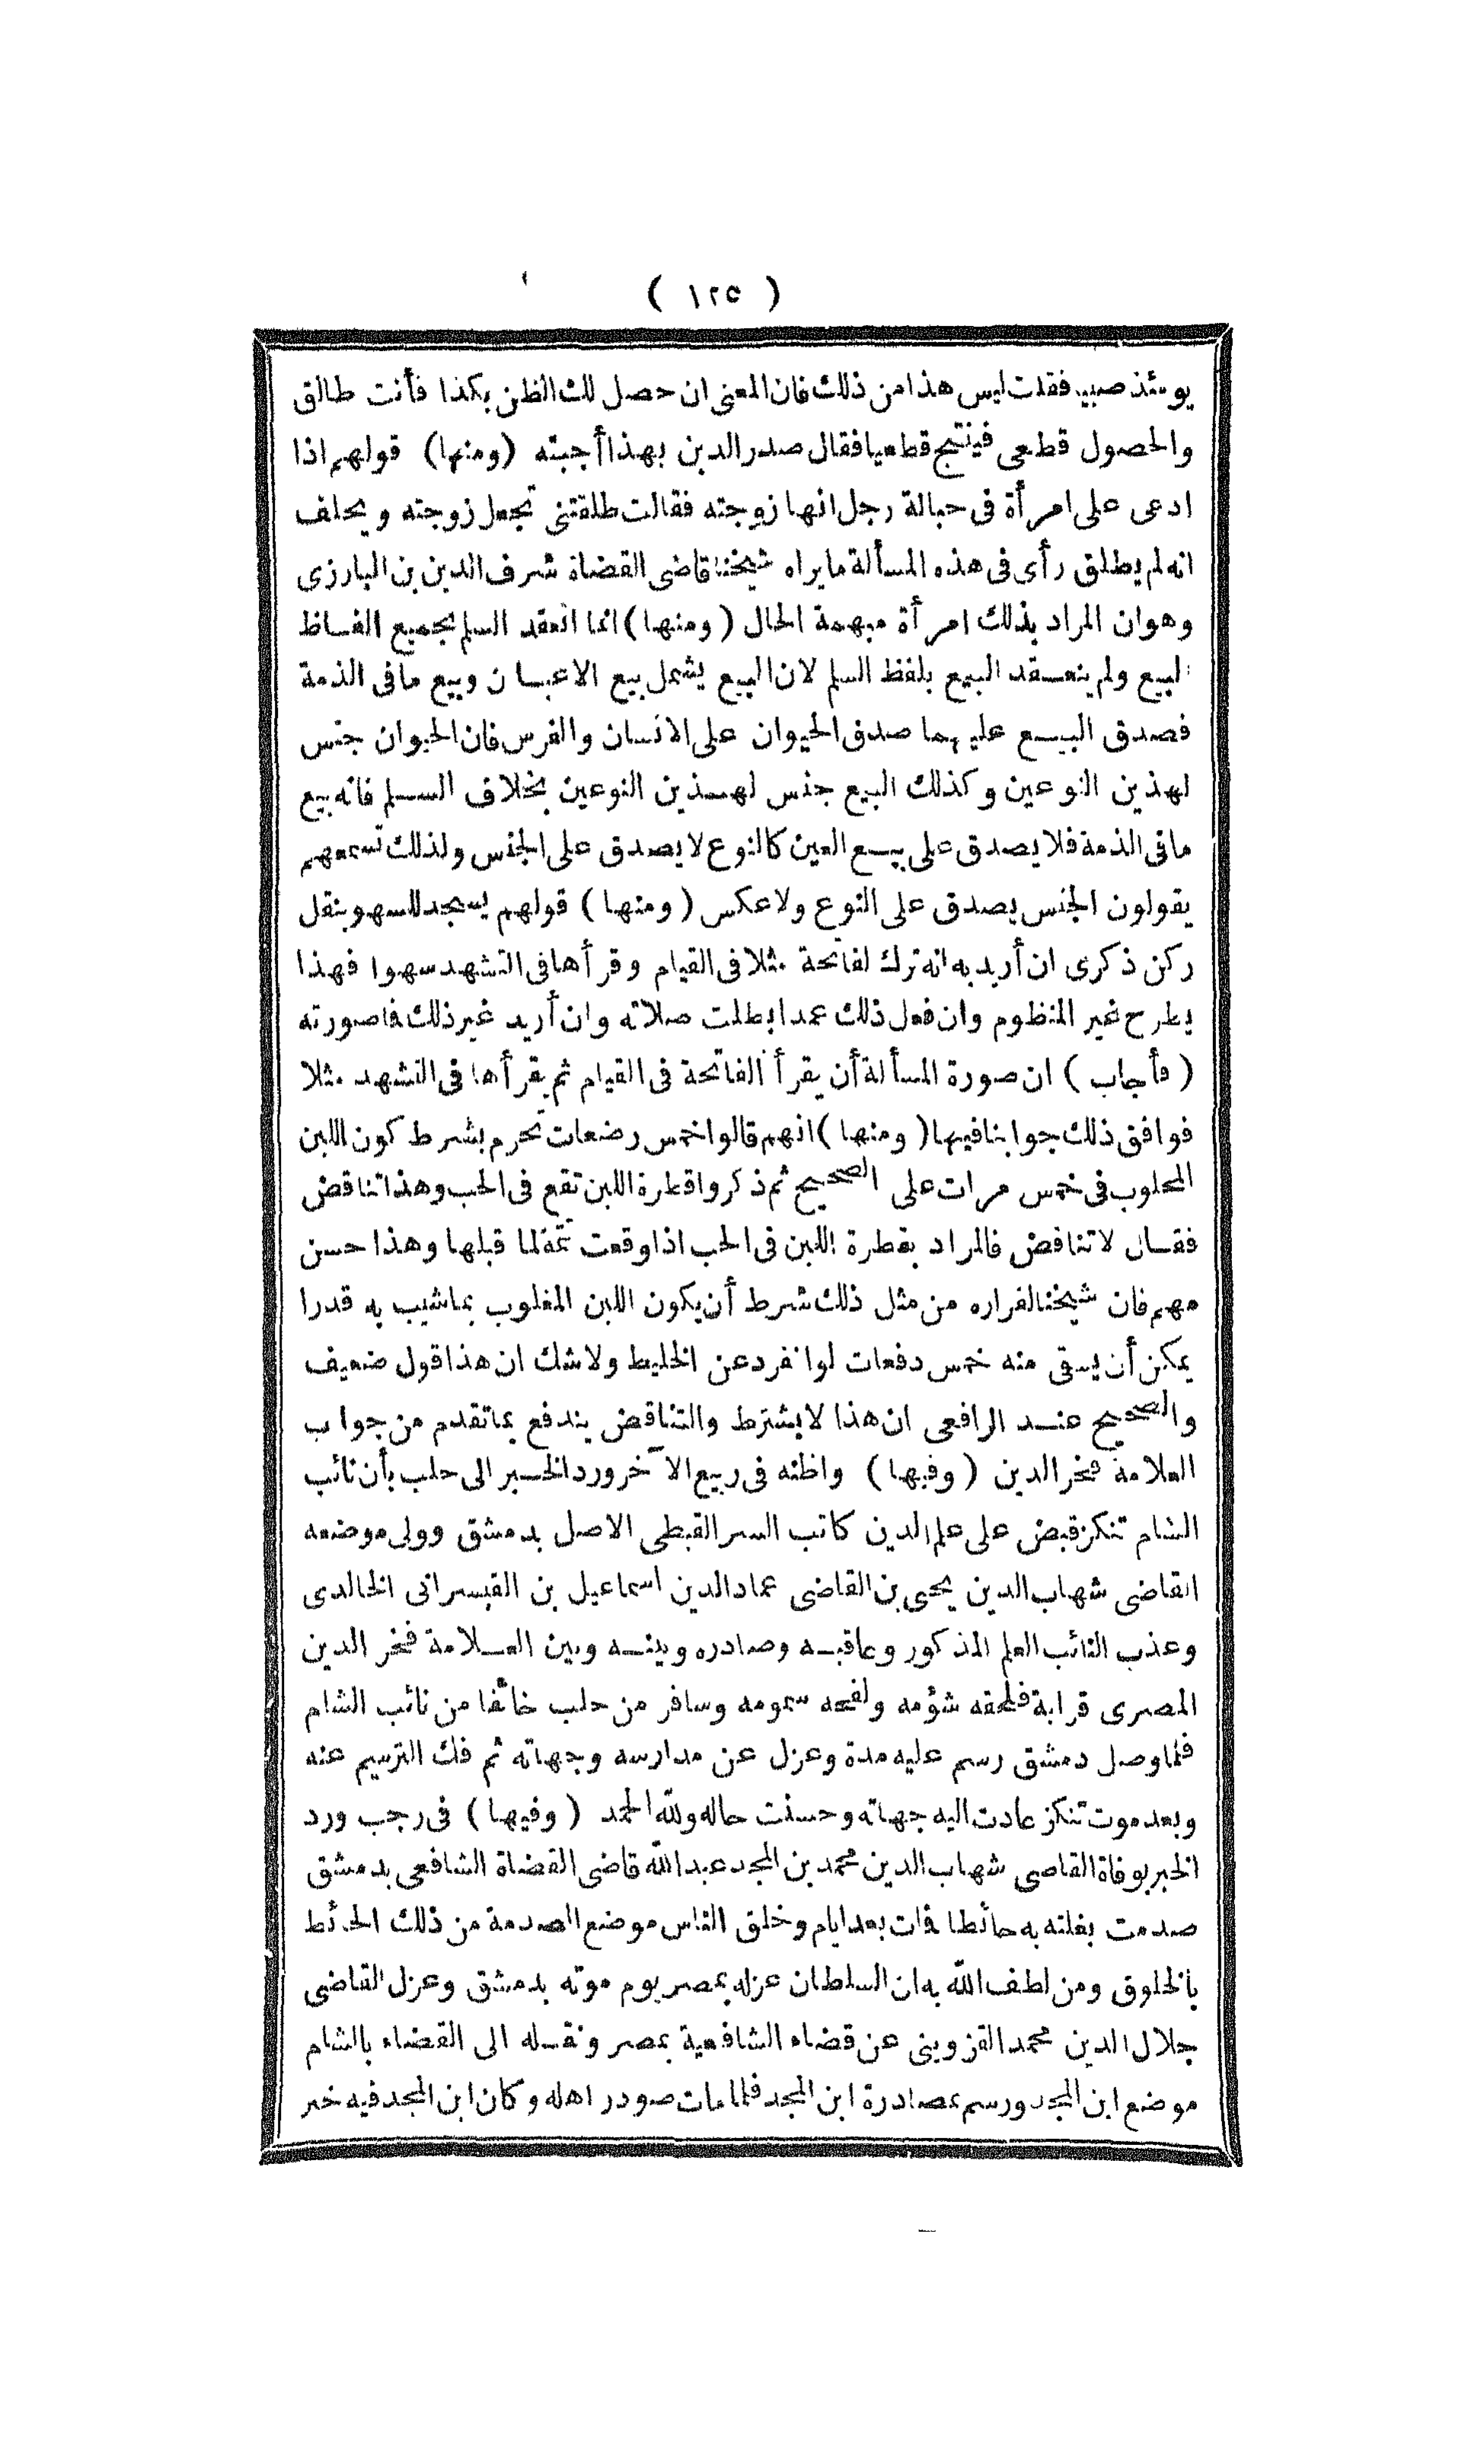 ( ١٢٥ )
يومئذ صبيا فقلت ليس هذا من ذلك فان المعنى ان حصل لك الظن بكذا فأنت طالق
والحصول قطعى فينتج قطعيا فقال صدر الدين بهذا أجبته (ومنها) قولهم اذا
ادعى على امرأة فى حبالة رجل انها زوجته فقالت طلقتنى تجعل زوجته ويحلف
انه لم يطلق رأى فى هذه المسألة ما يراه شيخنا قاضى القضاة شرف الدين بن البارزى
وهو ان المراد بذلك امرأة مبهمة الحال (ومنها) انما انعقد السلم بجميع الفاظ
البيع ولم ينعقد البيع بلفظ السلم لان البيع يشمل بيع الاعيان وبيع ما فى الذمة
فصدق البيع عليهما صدق الحيوان على الانسان والفرس فان الحيوان جنس
لهذين النوعين وكذلك البيع جنس لهذين النوعين بخلاف السلم فانه بيع
ما فى الذمة فلا يصدق على بيع العين كالنوع لا يصدق على الجنس ولذلك تسمعهم
يقولون الجنس يصدق على النوع ولا عكس (ومنها) قولهم يسجد للسهو بنقل
ركن ذكرى ان أريد به انه ترك لفاتحة مثلا فى القيام وقرأها فى التشهد سهوا فهذا
يطرح غير المنظوم وان فعل ذلك عمدا بطلت صلاته وان أريد غير ذلك فاصورته
(فأجاب) ان صورة المسألة أن يقرأ الفاتحة فى القيام ثم يقرأها فى التشهد مثلا
فوافق ذلك جوابنا فيها (ومنها) انهم قالوا خمس رضعات تحرم بشرط كون اللبن
المحلوب فى خمس مرات على الصحيح ثم ذكروا قطرة اللبن تقع فى الحب وهذا تناقض
فقال لا تناقض فالمراد بقطرة اللبن فى الحب اذا وقعت تتمة لما قبلها وهذا حسن
مهم فان شيخنا لفراره من مثل ذلك شرط أن يكون اللبن المغلوب بما شيب به قدرا
يمكن أن يسقى منه خمس دفعات لو انفرد عن الخليط ولا شك ان هذا قول ضعيف
والصحيح عند الرافعى ان هذا لا يشترط والتناقض يندفع بما تقدم من جواب
العلامة فخر الدين (وفيها) واظنه فى ربيع الآخر ورد الخبر الى حلب بأن نائب
الشام تنكز قبض على علم الدين كاتب السر القبطى الاصل بدمشق وولى موضعه
القاضى شهاب الدين يحيى بن القاضى عماد الدين اسماعيل بن القيسرانى الخالدى
وعذب النائب العلم المذكور وعاقبه وصادره وبينه وبين العلامة فخر الدين
المصرى قرابة فلحقه شؤمه ولفحه سمومه وسافر من حلب خائفا من نائب الشام
فلما وصل دمشق رسم عليه مدة وعزل عن مدارسه وجهاته ثم فك الترسيم عنه
وبعد موت تنكز عادت اليه جهاته وحسنت حاله ولله الحمد (وفيها) فى رجب ورد
الخبر بوفاة القاصى شهاب الدين محمد بن المجد عبد الله قاضى القضاة الشافعى بدمشق
صدمت بغلته به حائطا فمات بعد ايام وخلق الناس موضع الصدمة من ذلك الحائط
بالخلوق ومن لطف الله به ان السلطان عزله بمصر يوم موته بدمشق وعزل القاضى
جلال الدين محمد القزوينى عن قضاء الشافعية بمصر ونقله الى القضاء بالشام
موضع ابن المجد ورسم بمصادرة ابن المجد فلما مات صودر اهله وكان ابن المجد فيه خير